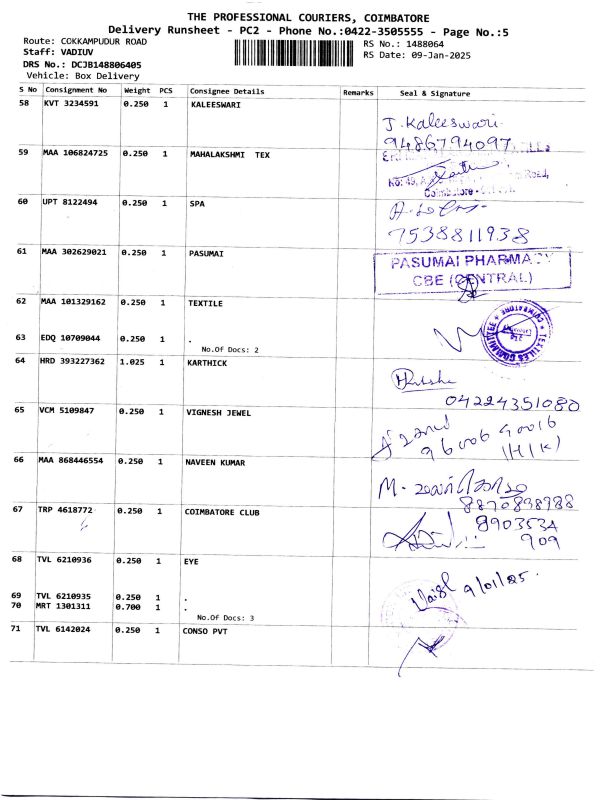 THE PROFESSIONAL COURIERS, COIMBATORE
Delivery Runsheet - PC2 - Phone No.:0422-3505555 - Page No.:5
Route: COKKAMPUDUR ROAD
RS No.: 1488064
Staff: VADIUV
RS Date: 09-Jan-2025
DRS No.: DCJB148806405
Vehicle: Box Delivery
S No Consignment No Weight PCS Consignee Details Remarks Seal & Signature
58 KVT 3234591 0.250 1 KALEESWARI
J. Kaleeswari
9486794097
59 MAA 106824725 0.250 1 MAHALAKSHMI TEX
No: 49, Road,
Coimbatore
60 UPT 8122494 0.250 1 SPA
7538811938
61 MAA 302629021 0.250 1 PASUMAI
PASUMAI PHARMACY
CBE (CENTRAL)
62 MAA 101329162 0.250 1 TEXTILE
TEXTILES COMMITTEE
COIMBATORE
63 EDQ 10709044 0.250 1 .
No.Of Docs: 2
64 HRD 393227362 1.025 1 KARTHICK
04224351080
65 VCM 5109847 0.250 1 VIGNESH JEWEL
(HK)
66 MAA 868446554 0.250 1 NAVEEN KUMAR
8870898988
67 TRP 4618772 0.250 1 COIMBATORE CLUB
8903534
909
68 TVL 6210936 0.250 1 EYE
9/01/25.
69 TVL 6210935 0.250 1 .
70 MRT 1301311 0.700 1 .
No.Of Docs: 3
71 TVL 6142024 0.250 1 CONSO PVT